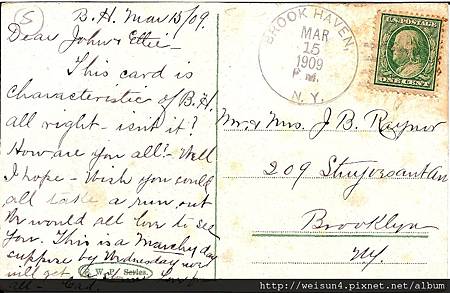 5
B.H. Mar 15/09.
Dear John & Ettie –
This card is
characteristic of B.H.
all right – isnt it?
How are you all? – Well
I hope – Wish you could
all take a run out
We would all love to see
you. This is a March day
suppose by Wednesday we
will get
all –
W. P. Series.
BROOK HAVEN,
MAR
15
1909
P M.
N. Y.
U.S. POSTAGE
ONE CENT
Mr & Mrs. J B. Raynor
209 Stuyvesant Av
Brooklyn
NY.
http://weisun4.pixnet.net/album